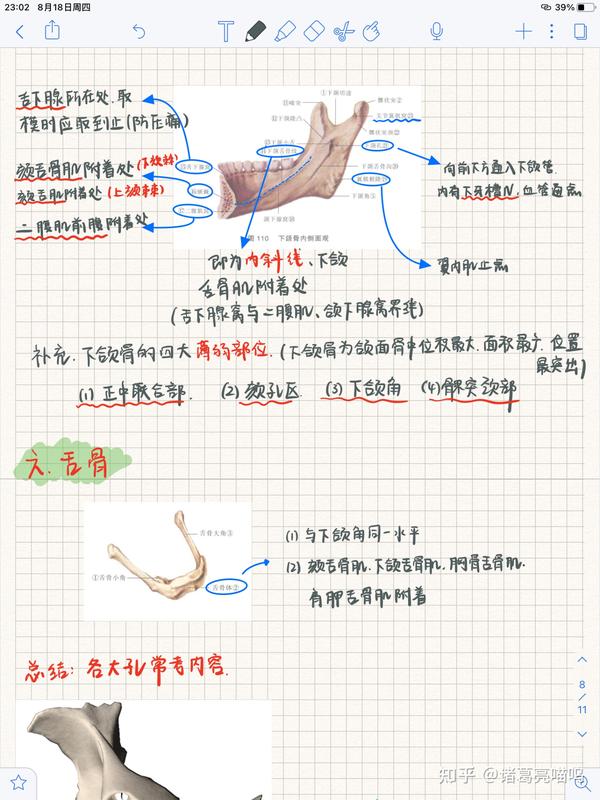 23:02 8月18日周四
39%
舌下腺所在处.取
模时应取到止(防压痛)
颏舌骨肌附着处(下颏棘)
颏舌肌附着处(上颏棘)
二腹肌前腹附着处
①下颌切迹
髁状突②
⑬喙突
髁状突颈
下颌孔
下颌小舌
下颌舌骨沟
下颌角⑤
颌下腺窝
图 110 下颌骨内侧面观
向前下方通入下颌管.
内有下牙槽N.血管通点
翼内肌止点
即为内斜线、下颌
舌骨肌附着处
(舌下腺窝与二腹肌、颌下腺窝界线)
补充.下颌骨的四大薄弱部位.(下颌骨为颌面骨中位积最大.面积最广.位置
最突出)
(1)正中联合部. (2)颏孔区. (3)下颌角 (4)髁突颈部
六.舌骨
舌骨大角③
①舌骨小角
舌骨体②
(1)与下颌角同一水平
(2)颏舌骨肌.下颌舌骨肌.胸骨舌骨肌.
肩胛舌骨肌附着
总结:各大孔常考内容.
8
/
11
知乎 @诸葛亮喵呜